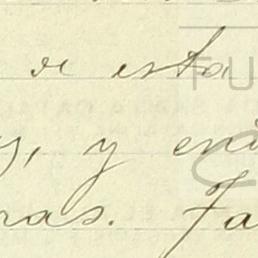 de esta
y, y en
ras. Fa